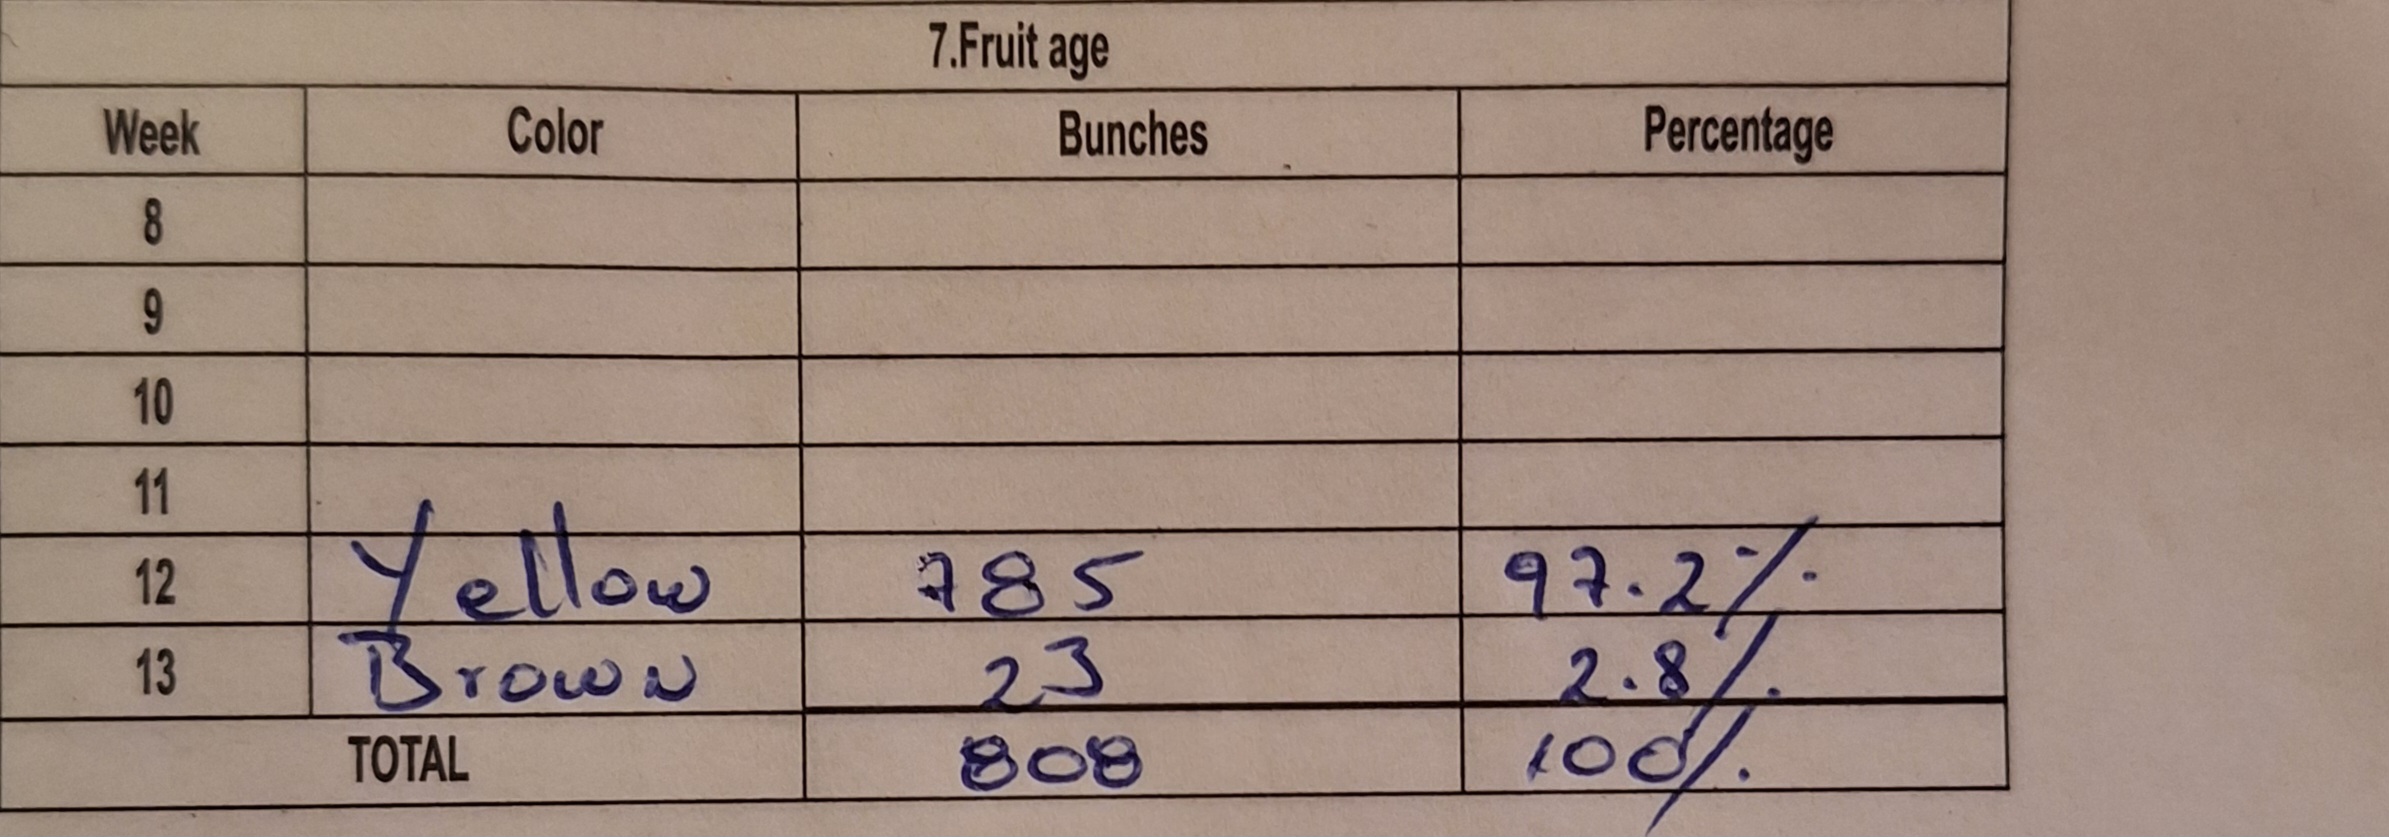 7.Fruit age
Week Color Bunches Percentage
8
9
10
11
12 Yellow 785 97.2%
13 Brown 23 2.8%
TOTAL 808 100%